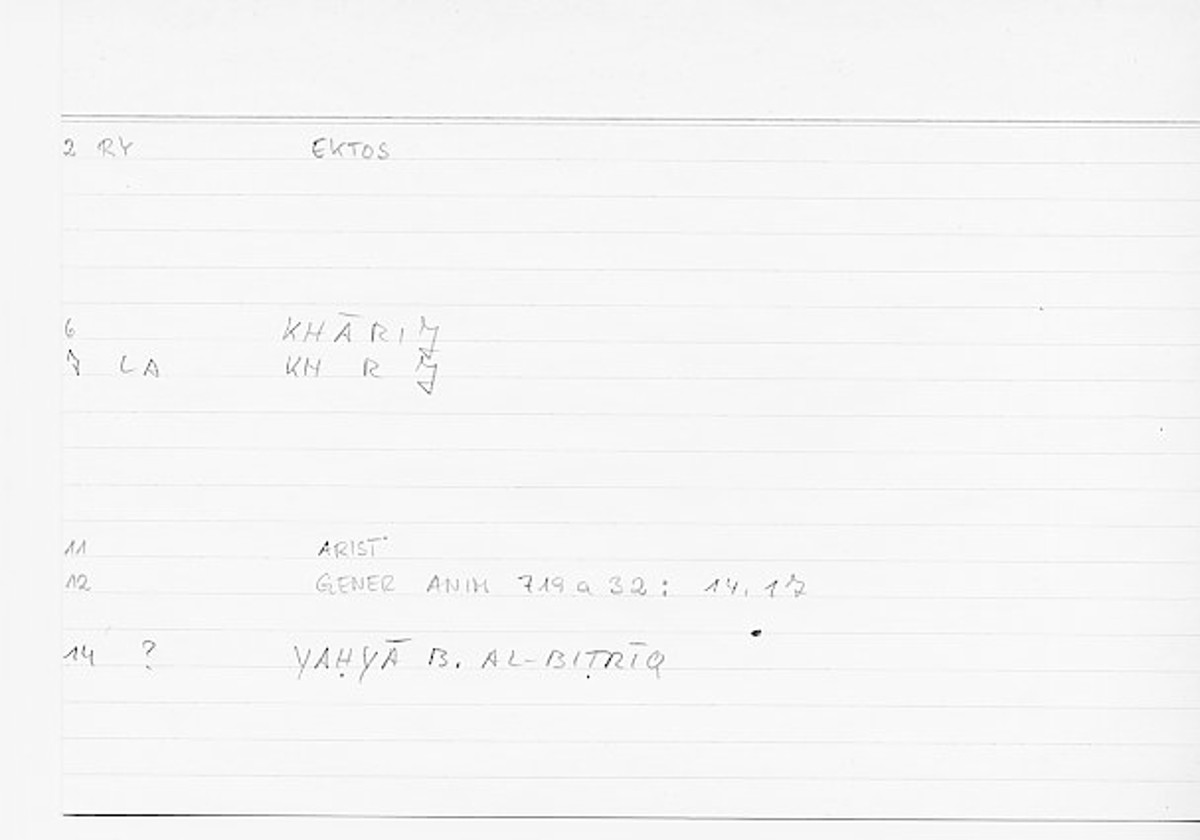 2 RY EKTOS
6 KHĀRIJ
7 LA KH R J
11 ARIST
12 GENER ANIM 719a 32: 14.17
14 ? YAḤYĀ B. AL-BIṬRĪQ